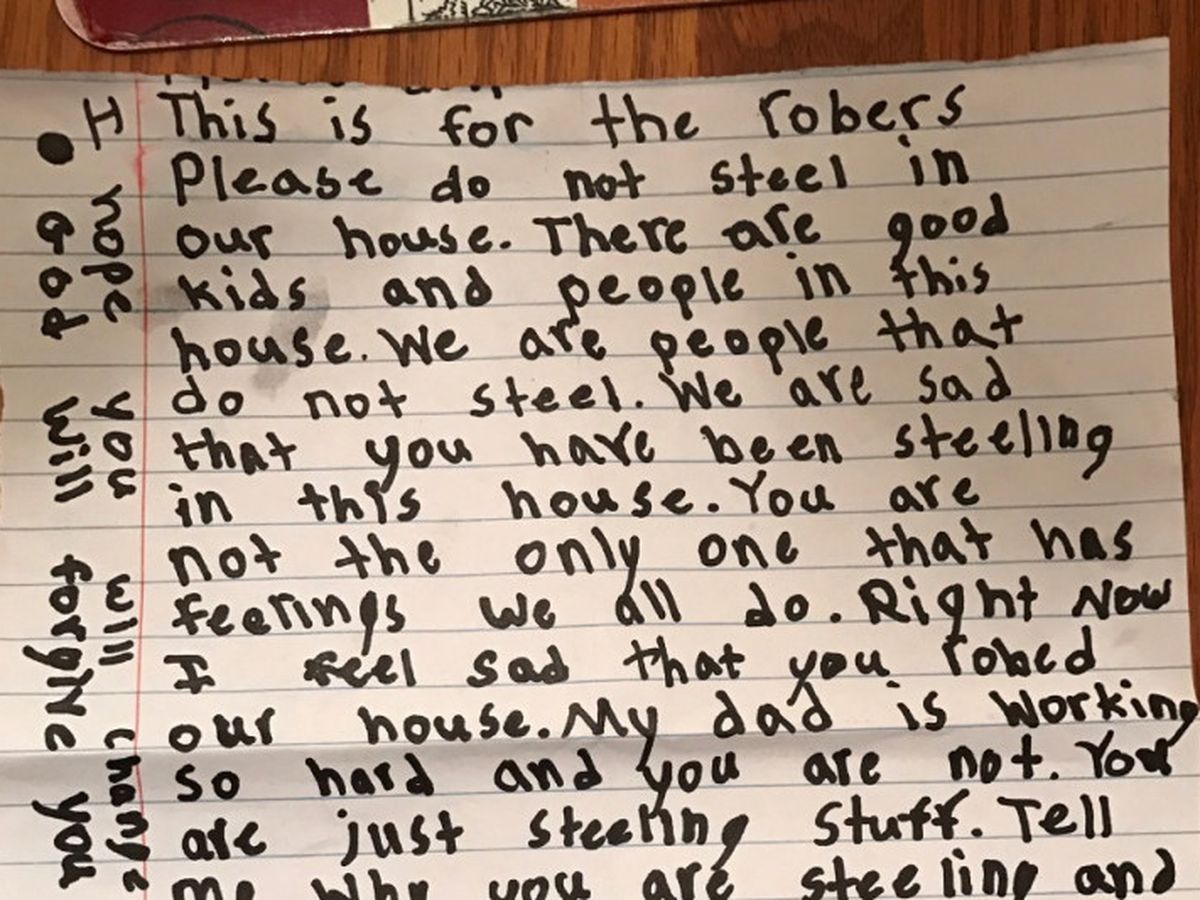 This is for the robers
Please do not steel in
our house. There are good
kids and people in this
house. We are people that
do not steel. We are sad
that you have been steeling
in this house. You are
not the only one that has
feelings we all do. Right Now
I feel sad that you robed
our house. My dad is working
so hard and you are not. You
are just steeling stuff. Tell
me why you are steeling and
I hope you will change
God will forgive you